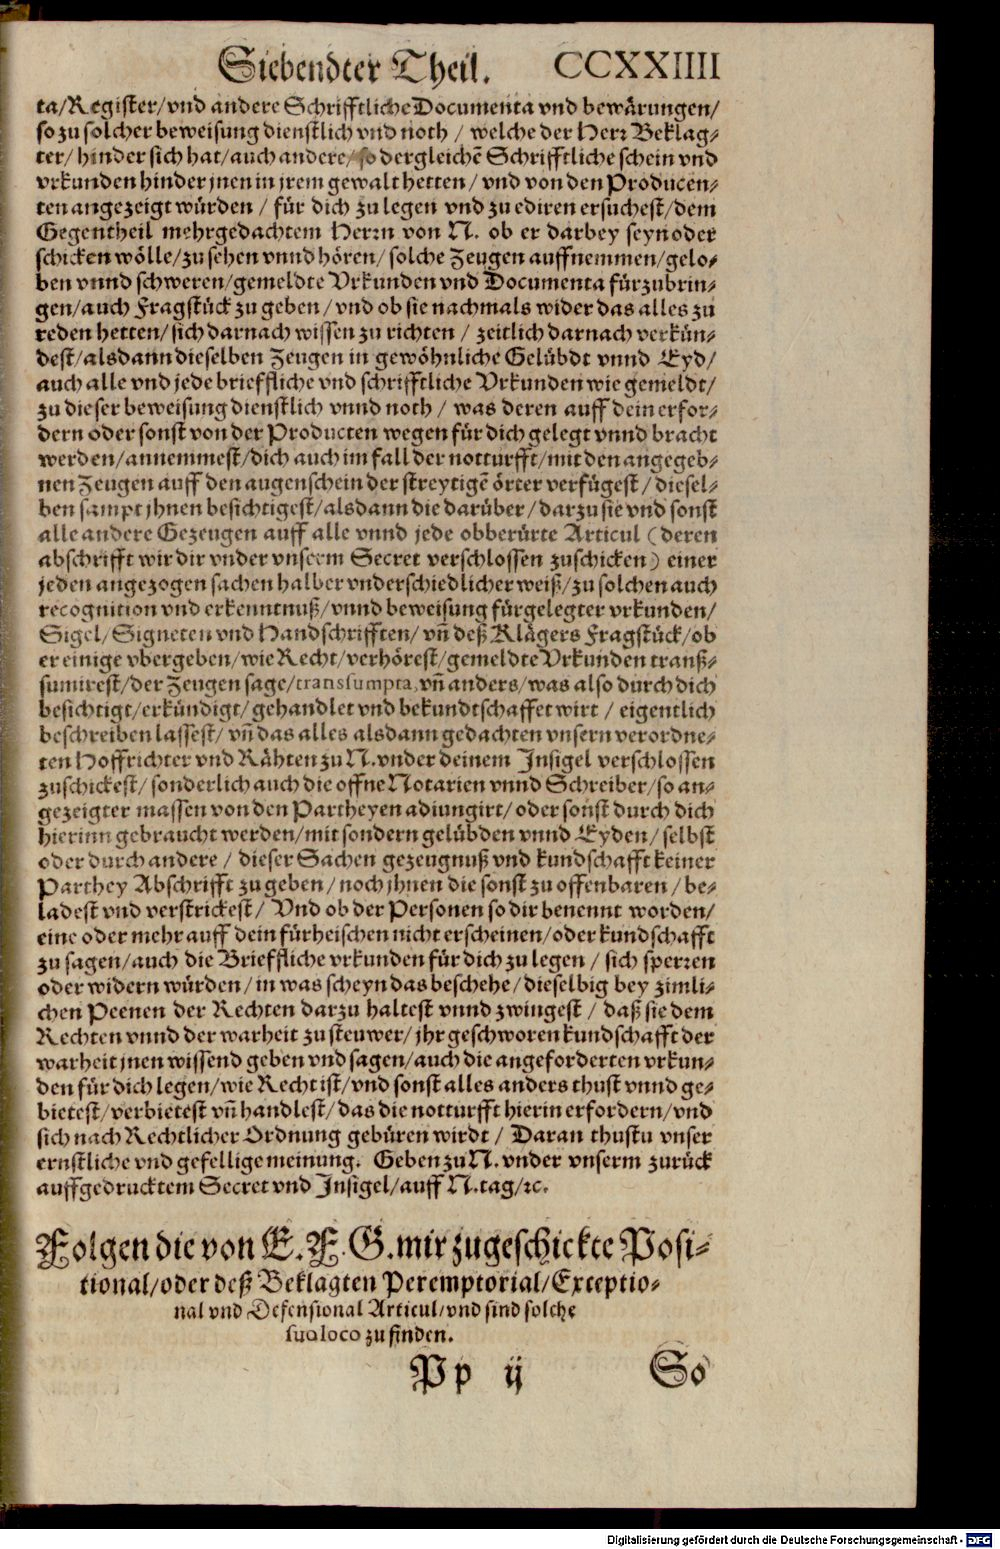 Siebendter Theil. CCXXIIII
ta/Register/vnd andere Schrifftliche Documenta vnd bewärungen/
so zu solcher beweisung dienstlich vnd noch / welche der Herr Beklag-
ter/ hinder sich hat/auch andere/so dergleichē Schrifftliche schein vnd
vrkunden hinder jnen in jrem gewalt hetten/ vnd von den Producen-
ten angezeigt würden / für dich zu legen vnd zu ediren ersuchest/dem
Gegentheil mehrgedachtem Herrn von N. ob er darbey seyn oder
schicken wölle/zu sehen vnnd hören/ solche Zeugen auffnemmen/gelo-
ben vnnd schweren/gemeldte Vrkunden vnd Documenta fürzubrin-
gen/auch Fragstück zu geben/vnd ob sie nachmals wider das alles zu
reden hetten/sich darnach wissen zu richten / zeitlich darnach verkün-
dest/alsdann dieselben Zeugen in gewöhnliche Gelübdt vnnd Eyd/
auch alle vnd jede brieffliche vnd schrifftliche Vrkunden wie gemeldt/
zu dieser beweisung dienstlich vnnd noch / was deren auff dein erfor-
dern oder sonst von der Producten wegen für dich gelegt vnnd bracht
werden/annemmest/dich auch im fall der notturfft/mit den angegeb-
nen Zeugen auff den augenschein der streytigē örter verfügest/ diesel-
ben sampt jhnen besichtigest/alsdann die darüber/darzu sie vnd sonst
alle andere Gezeugen auff alle vnnd jede obberürte Articul (deren
abschrifft wir dir vnder vnserm Secret verschlossen zuschicken) einer
jeden angezogen sachen halber vnderschiedlicher weiß/zu solchen auch
recognition vnd erkenntnuß/vnnd beweisung fürgelegter vrkunden/
Sigel/Signeten vnd Handschrifften/ vñ deß Klägers Fragstück/ob
er einige vbergeben/wie Recht/verhörest/gemeldte Vrkunden tranß-
sumirest/der Zeugen sage/transsumpta, vñ anders/was also durch dich
besichtigt/erkündigt/gehandlet vnd bekundtschaffet wirt / eigentlich
beschreiben lassest/ vñ das alles alsdann gedachten vnsern verordne-
ten Hoffrichter vnd Rähten zu N. vnder deinem Insigel verschlossen
zuschickest/sonderlich auch die offne Notarien vnnd Schreiber/so an-
gezeigter massen von den Partheyen adiungirt/oder sonst durch dich
hierinn gebraucht werden/mit sondern gelübden vnnd Eyden/ selbst
oder durch andere / dieser Sachen gezeugnuß vnd kundschafft keiner
Parthey Abschrifft zu geben/noch jhnen die sonst zu offenbaren / be-
ladest vnd verstrickest/ Vnd ob der Personen so dir benennt worden/
eine oder mehr auff dein fürheischen nicht erscheinen/oder kundschafft
zu sagen/auch die Brieffliche vrkunden für dich zu legen / sich sperren
oder widern würden/in was scheyn das beschehe/dieselbig bey zimli-
chen Peenen der Rechten darzu haltest vnnd zwingest / daß sie dem
Rechten vnnd der warheit zu steuwer/jhr geschworen kundschafft der
warheit jnen wissend geben vnd sagen/auch die angeforderten vrkun-
den für dich legen/wie Recht ist/vnd sonst alles anders thust vnnd ge-
bietest/verbietest vñ handlest/das die notturfft hierin erfordern/vnd
sich nach Rechtlicher Ordnung gebüren wirdt / Daran thustu vnser
ernstliche vnd gefellige meinung. Geben zu N. vnder vnserm zurück
auffgedrucktem Secret vnd Insigel/auff N. tag/ꝛc.
Folgen die von E. F. G. mir zugeschickte Posi-
tional/oder deß Beklagten Peremptorial/Exceptio-
nal vnd Defensional Articul/vnd sind solche
suo loco zu finden.
Pp ij So
Digitalisierung gefördert durch die Deutsche Forschungsgemeinschaft - DFG